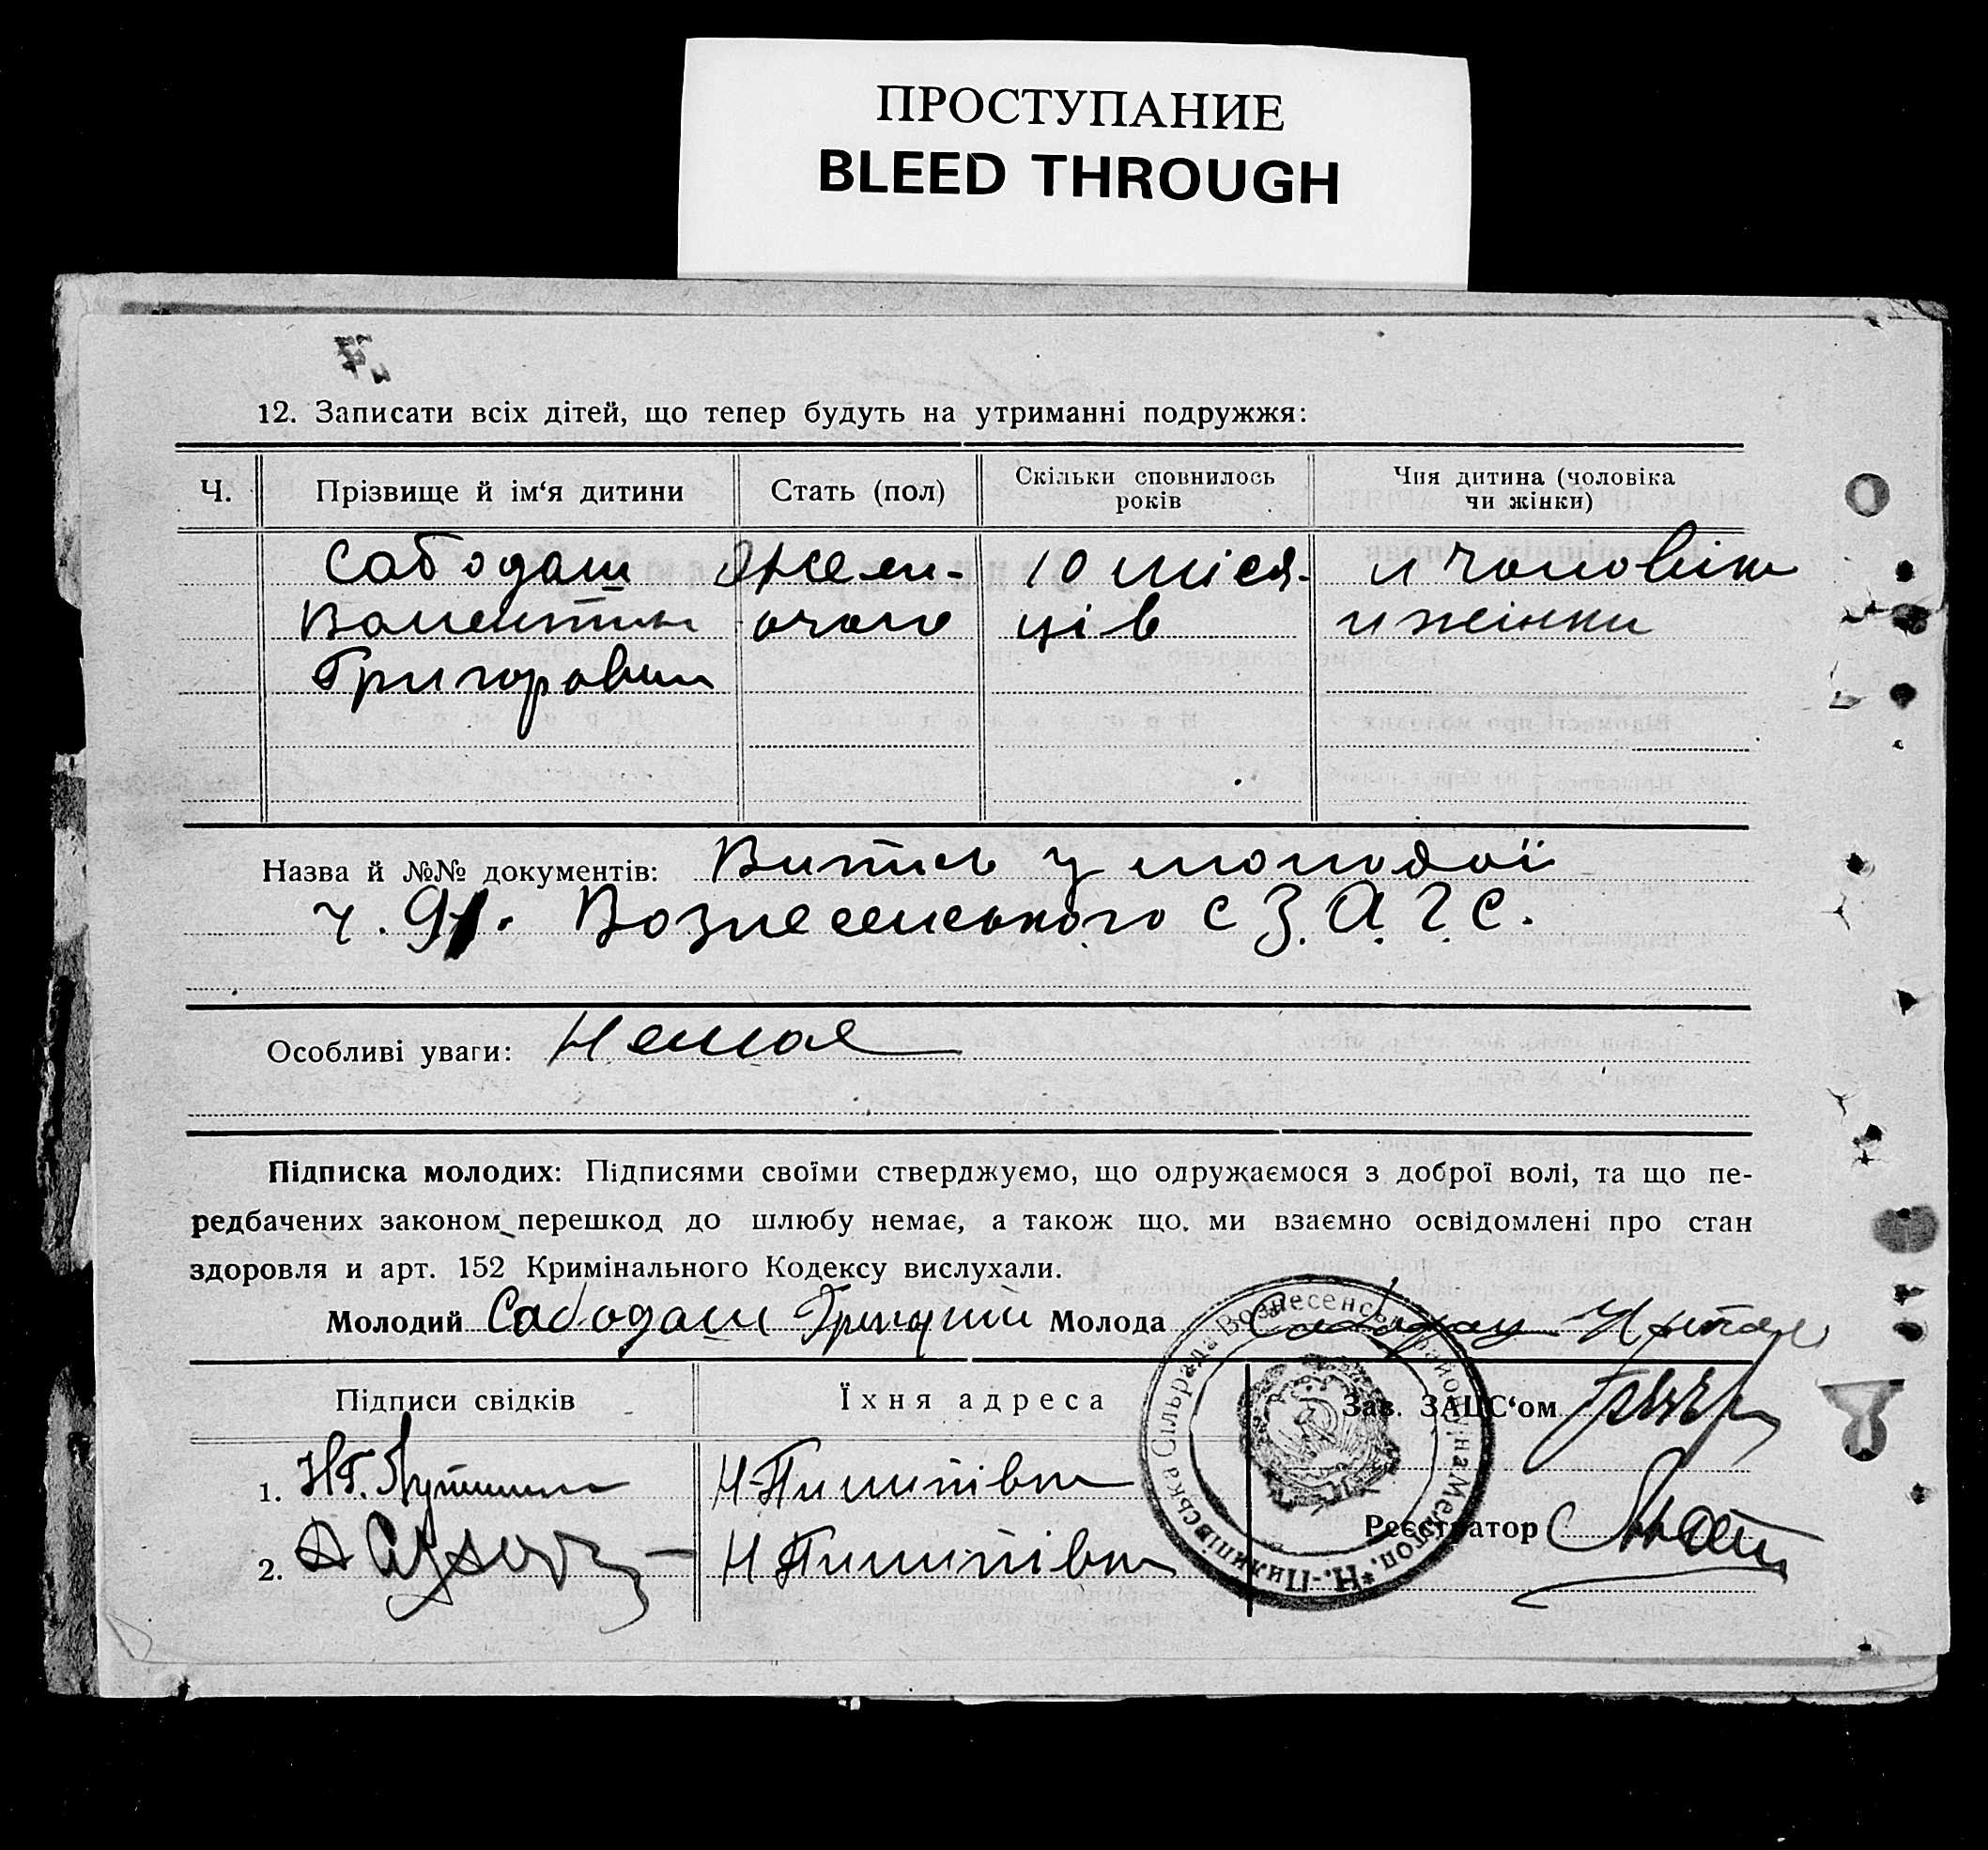 ПРОСТУПАНИЕ
BLEED THROUGH
12. Записати всіх дітей, що тепер будуть на утриманні подружжя:
Ч. Прізвище й ім‘я дитини Стать (пол) Скільки сповнилось років Чия дитина (чоловіка чи жінки)
Сабодаш 10 міся- и чоловіка
Валентин ців и жінки
Григорович
Назва й №№ документів: Витяг у молодої
ч. 91. Вознесенського с З.А.Г.С.
Особливі уваги: Немає
Підписка молодих: Підписями своїми стверджуємо, що одружаємося з доброї волі, та що пе-
редбачених законом перешкод до шлюбу немає, а також що. ми взаємно освідомлені про стан
здоровля и арт. 152 Кримінального Кодексу вислухали.
Молодий Сабодаш Григорий Молода Сабодаш
Підписи свідків Їхня адреса Зав. ЗАЦС‘ом
1. Н-Пилипівка
2. Н Пилипівка Реєстратор
*Н.-Пилипівська Сільрада Вознесенськ. району на Мелітоп.